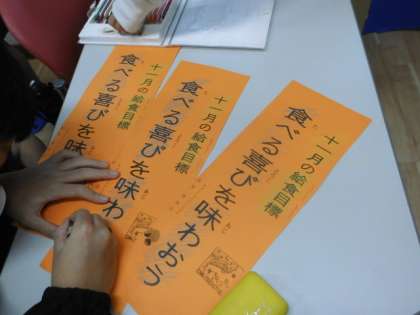 十一月の給食目標
食べる喜びを味わおう
十一月の給食目標
食べる喜びを味わおう
十一月の給食目標
食べる喜びを味わ